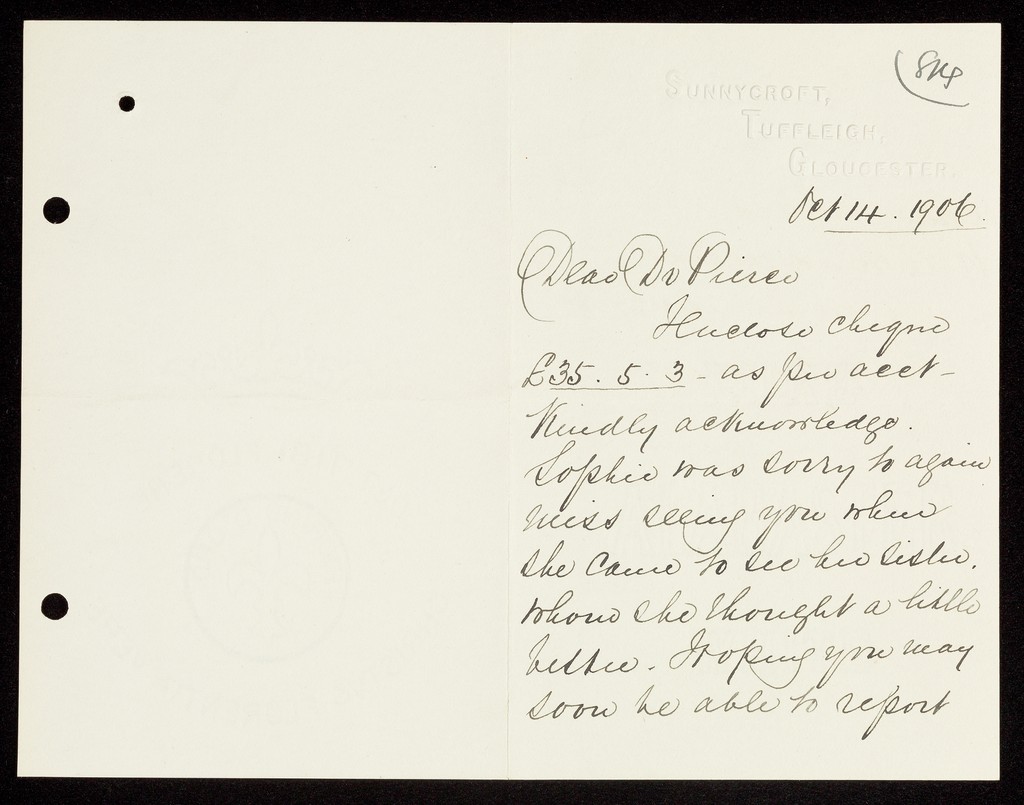 SUNNYCROFT,
TUFFLEIGH,
GLOUCESTER.
Oct 14. 1906.
Dear Dr Pierce
I Enclose cheque
£35. 5. 3 - as per acct -
Kindly acknowledge.
Sophie was sorry to again
miss seeing you when
she came to see her sister.
whom she thought a little
better. Hoping you may
soon be able to report